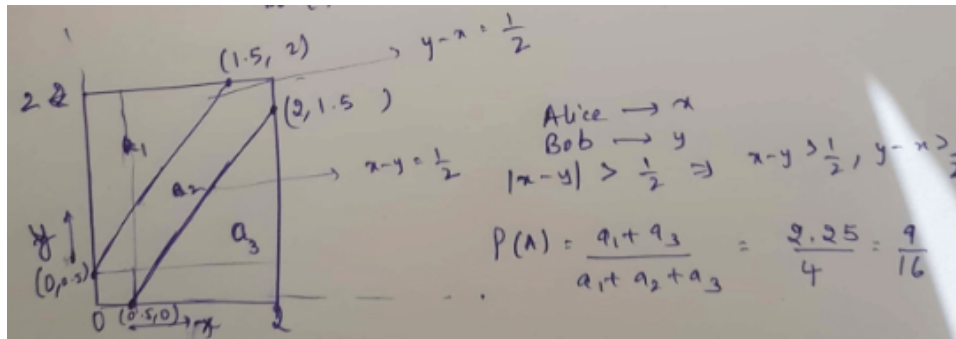 (1.5, 2)
y-x = 1/2
2
(2, 1.5 )
a1
Alice → x
Bob → y
x-y = 1/2
a2
|x-y| > 1/2 ⇒ x-y > 1/2, y-x >
y
a3
P(A) = a1 + a3 / a1 + a2 + a3 = 2.25 / 4 = 9 / 16
(0,0.5)
0 (0.5,0) → x 2